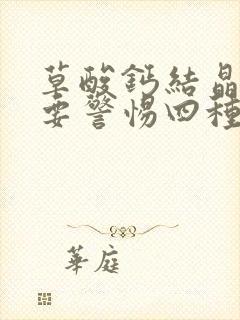 草酸鈣結晶
要警惕四種
華庭